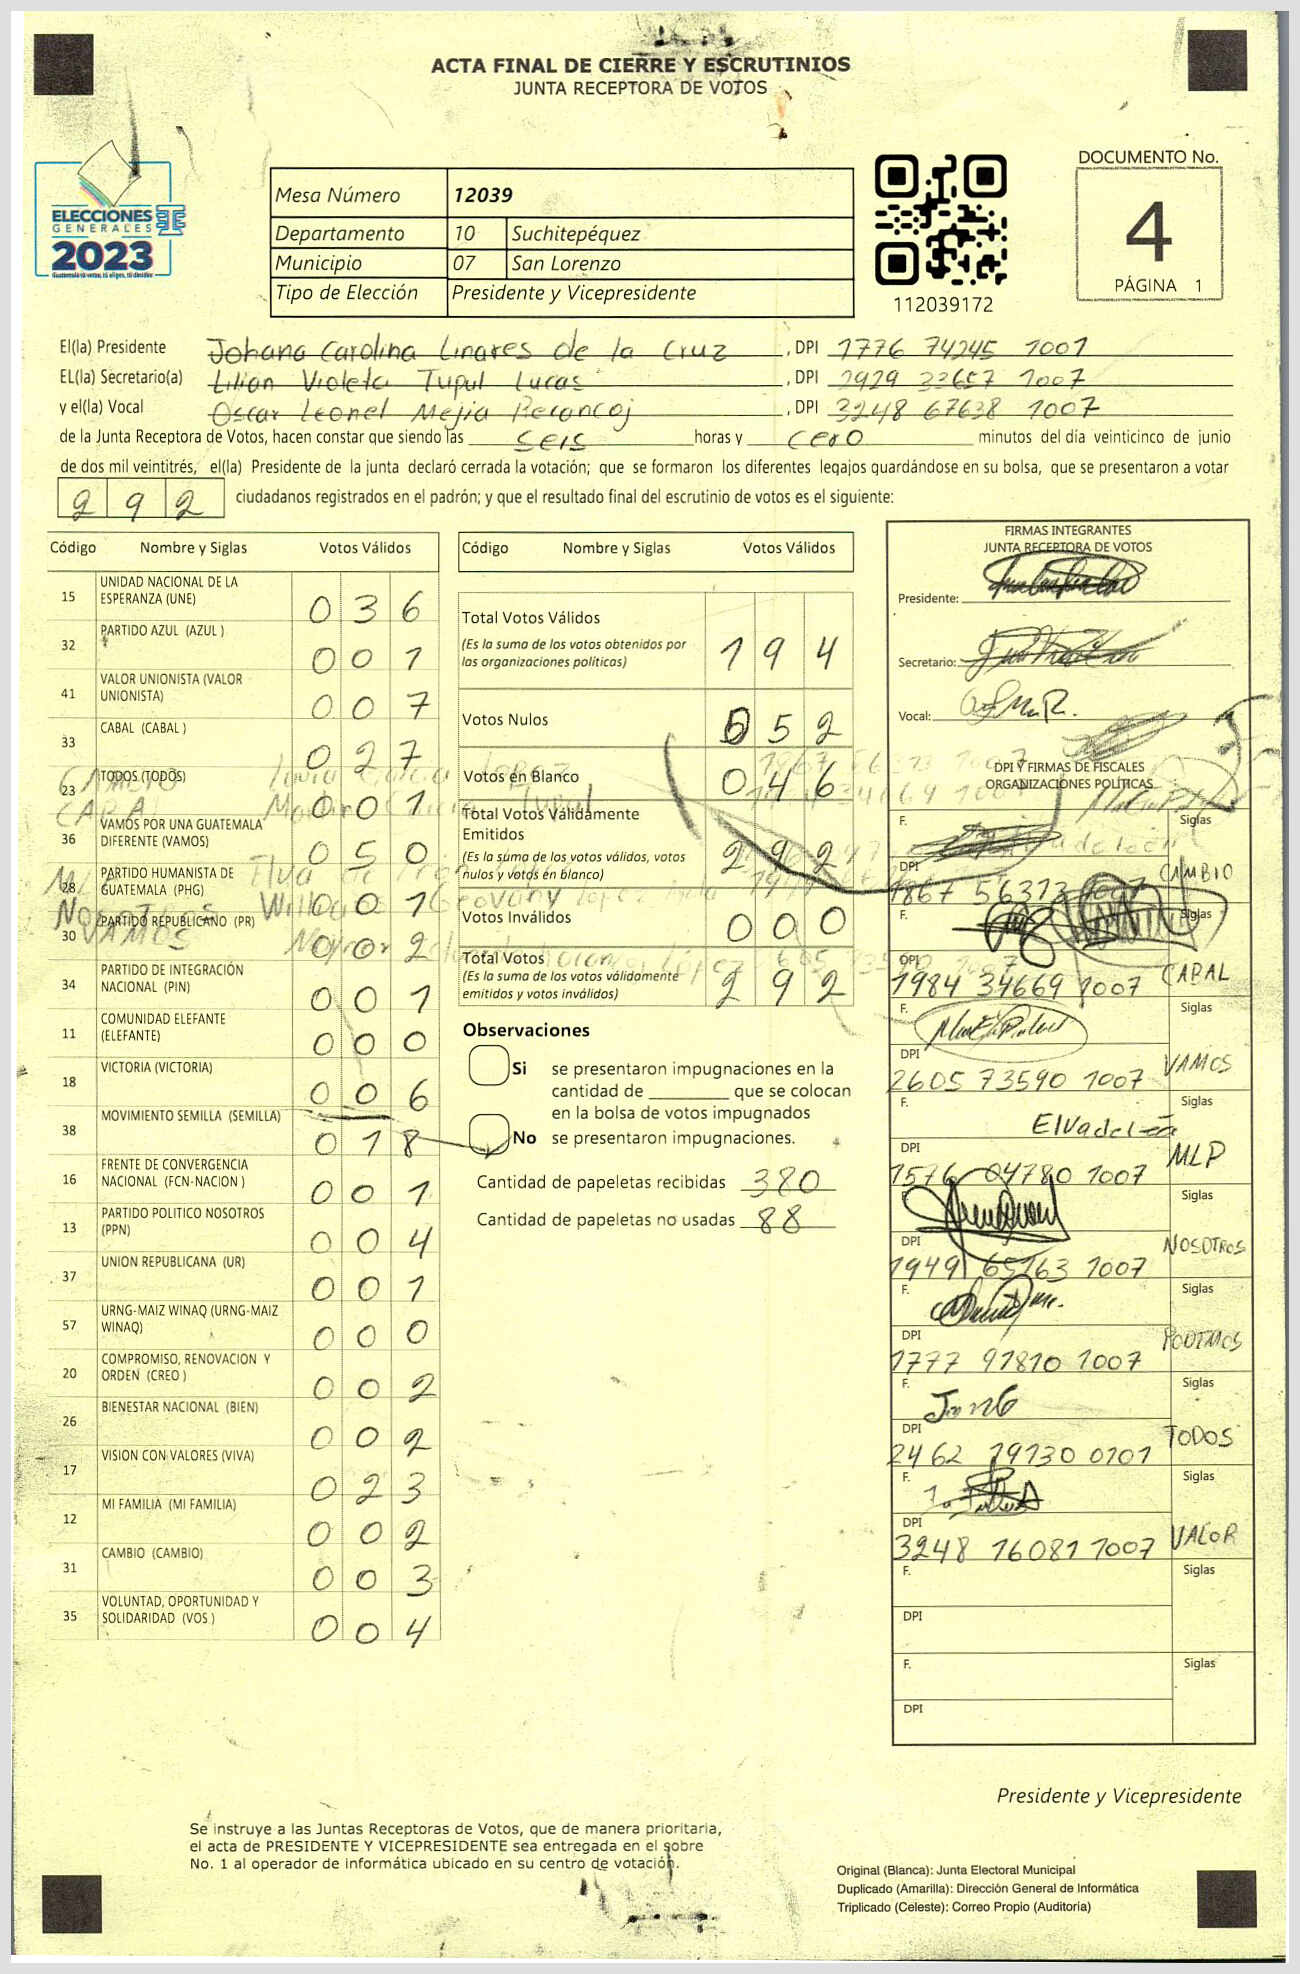 ACTA FINAL DE CIERRE Y ESCRUTINIOS
JUNTA RECEPTORA DE VOTOS
ELECCIONES
GENERALES
2023
Mesa Número 12039
Departamento 10 Suchitepéquez
Municipio 07 San Lorenzo
Tipo de Elección Presidente y Vicepresidente
112039172
DOCUMENTO No.
4
PÁGINA 1
El(la) Presidente Johana Carolina Linares de la Cruz, DPI 1776 74245 1001
EL(la) Secretario(a) Lilian Violeta Tupul Lucas, DPI 2929 33657 1007
y el(la) Vocal Oscar Leonel Mejia, DPI 3248 67638 1007
de la Junta Receptora de Votos, hacen constar que siendo las seis horas y cero minutos del día veinticinco de junio
de dos mil veintitrés, el(la) Presidente de la junta declaró cerrada la votación; que se formaron los diferentes legajos guardándose en su bolsa, que se presentaron a votar
292 ciudadanos registrados en el padrón; y que el resultado final del escrutinio de votos es el siguiente:
Código Nombre y Siglas Votos Válidos
15 UNIDAD NACIONAL DE LA ESPERANZA (UNE) 036
32 PARTIDO AZUL (AZUL ) 001
41 VALOR UNIONISTA (VALOR UNIONISTA) 007
33 CABAL (CABAL ) 027
23 TODOS (TODOS) 001
36 VAMOS POR UNA GUATEMALA DIFERENTE (VAMOS) 050
28 PARTIDO HUMANISTA DE GUATEMALA (PHG) 001
30 PARTIDO REPUBLICANO (PR) 002
34 PARTIDO DE INTEGRACIÓN NACIONAL (PIN) 001
11 COMUNIDAD ELEFANTE (ELEFANTE) 000
18 VICTORIA (VICTORIA) 006
38 MOVIMIENTO SEMILLA (SEMILLA) 018
16 FRENTE DE CONVERGENCIA NACIONAL (FCN-NACION ) 001
13 PARTIDO POLITICO NOSOTROS (PPN) 004
37 UNION REPUBLICANA (UR) 001
57 URNG-MAIZ WINAQ (URNG-MAIZ WINAQ) 000
20 COMPROMISO, RENOVACION Y ORDEN (CREO ) 002
26 BIENESTAR NACIONAL (BIEN) 002
17 VISION CON VALORES (VIVA) 023
12 MI FAMILIA (MI FAMILIA) 002
31 CAMBIO (CAMBIO) 003
35 VOLUNTAD, OPORTUNIDAD Y SOLIDARIDAD (VOS ) 004
Código Nombre y Siglas Votos Válidos
Total Votos Válidos 194
(Es la suma de los votos obtenidos por
las organizaciones políticas)
Votos Nulos 052
Votos en Blanco 046
Total Votos Válidamente
Emitidos 292
(Es la suma de los votos válidos, votos
nulos y votos en blanco)
Votos Inválidos 000
Total Votos 292
(Es la suma de los votos válidamente
emitidos y votos inválidos)
Observaciones
Si se presentaron impugnaciones en la
cantidad de ________ que se colocan
en la bolsa de votos impugnados
No se presentaron impugnaciones.
Cantidad de papeletas recibidas 380
Cantidad de papeletas no usadas 88
FIRMAS INTEGRANTES
JUNTA RECEPTORA DE VOTOS
Presidente:
Secretario:
Vocal:
DPI Y FIRMAS DE FISCALES
ORGANIZACIONES POLÍTICAS
F. Siglas
DPI 1867 56373 1007 CAMBIO
F. Siglas
DPI 1984 34669 1007 CABAL
F. Siglas
DPI 2605 73590 1007 VAMOS
F. Elva de León Siglas
DPI 1576 04780 1007 MLP
F. Siglas
DPI 1949 65163 1007 NOSOTROS
F. Siglas
DPI 1777 91810 1007 PODEMOS
F. Siglas
DPI 2462 19130 0101 TODOS
F. Siglas
DPI 3248 16081 1007 VALOR
F. Siglas
DPI
F. Siglas
DPI
Presidente y Vicepresidente
Se instruye a las Juntas Receptoras de Votos, que de manera prioritaria,
el acta de PRESIDENTE Y VICEPRESIDENTE sea entregada en el sobre
No. 1 al operador de informática ubicado en su centro de votación.
Original (Blanca): Junta Electoral Municipal
Duplicado (Amarilla): Dirección General de Informática
Triplicado (Celeste): Correo Propio (Auditoria)